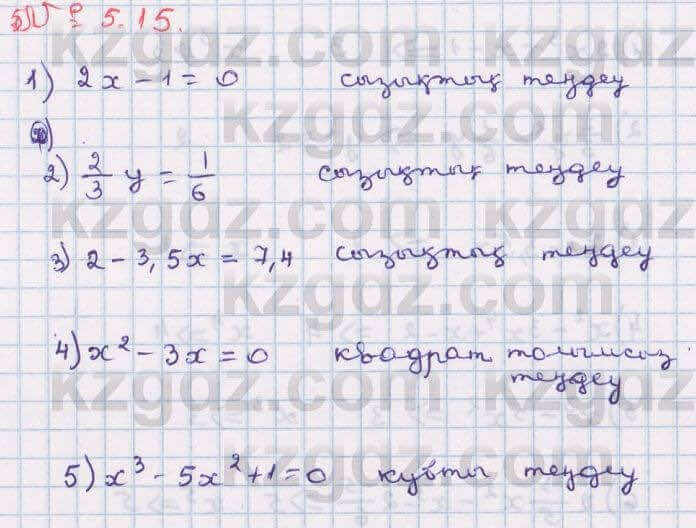 № 5.15.
1) 2x - 1 = 0 сызықтық теңдеу
2) 2/3 y = 1/6 сызықтық теңдеу
3) 2 - 3,5x = 7,4 сызықтық теңдеу
4) x² - 3x = 0 квадрат толымсыз теңдеу
5) x³ - 5x² + 1 = 0 кубты теңдеу
kzgdz.com